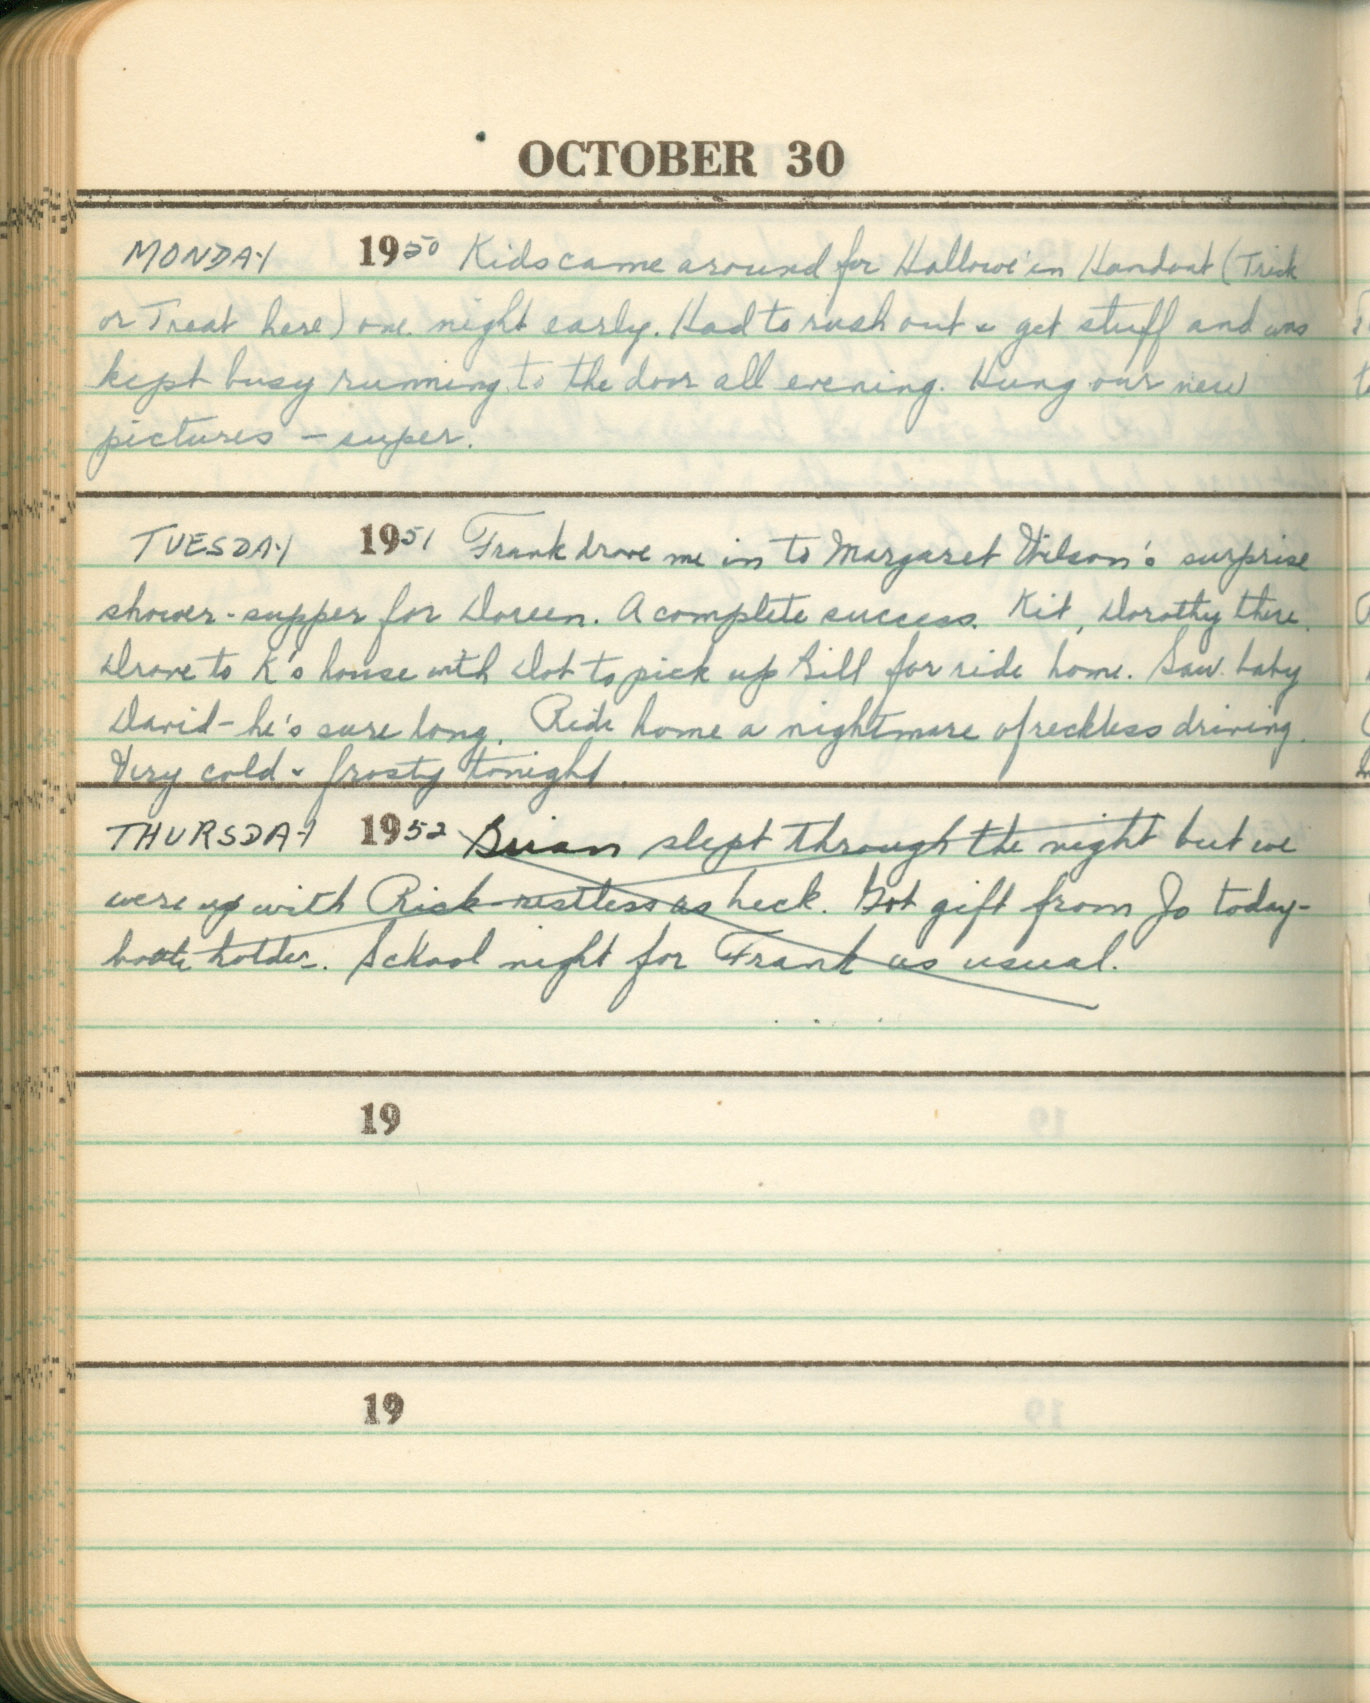 OCTOBER 30
MONDAY 1950 Kids came around for Hallowe'en Handout (Trick
or Treat here) one night early. Had to rush out & get stuff and was
kept busy running to the door all evening. Hung our new
pictures - super.
TUESDAY 1951 Frank drove me in to Margaret Wilson's surprise
shower-supper for Doreen. A complete success. Kit, Dorothy there.
Drove to K's house with Dot to pick up Bill for ride home. Saw baby
David - he's sure long. Ride home a nightmare of reckless driving.
Very cold & frosty tonight.
THURSDAY 1952 Brian slept through the night but we
were up with Rick - restless as heck. Got gift from Jo today -
bottle holder. School night for Frank as usual.
19
19